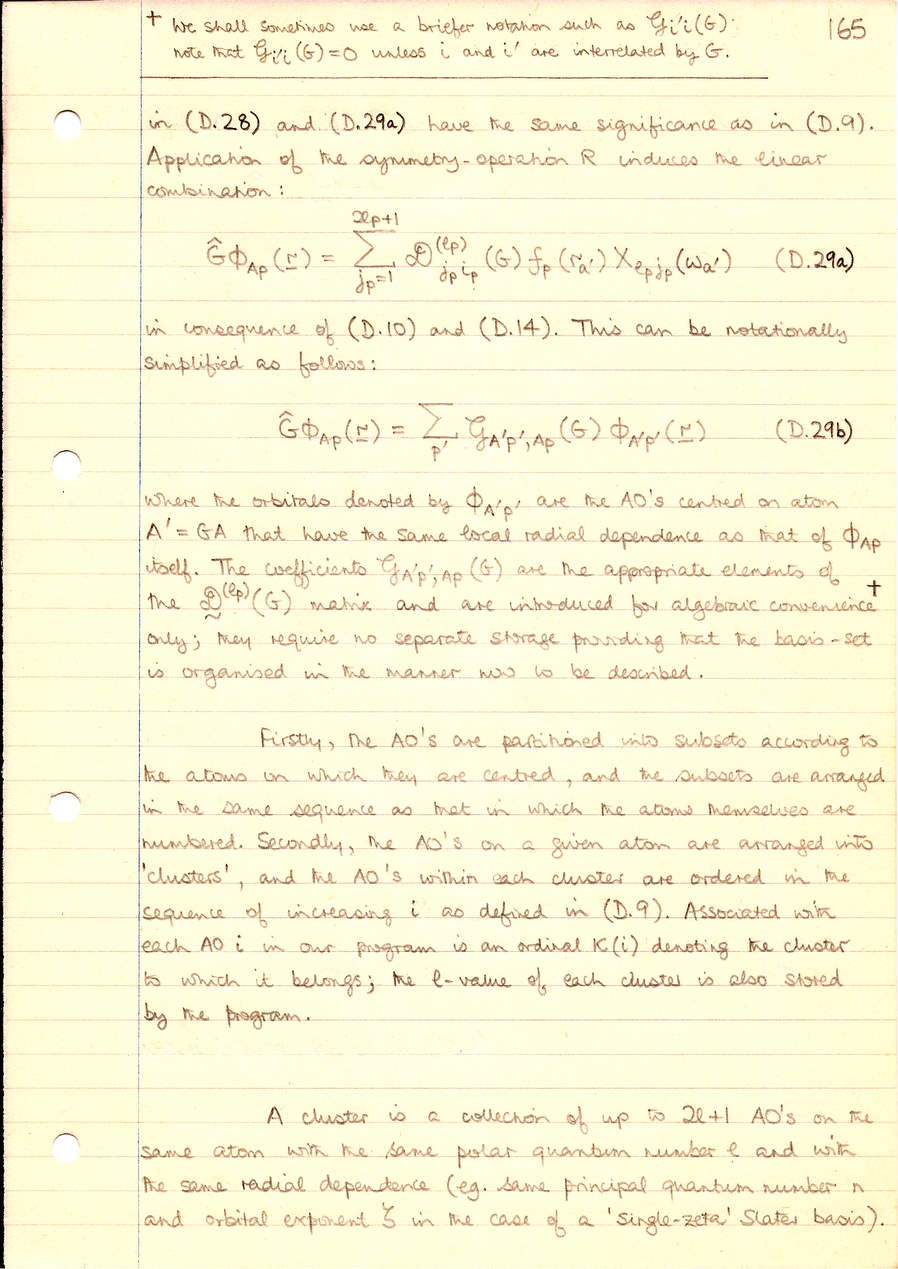 † We shall sometimes use a briefer notation such as 𝒢i'i(G).
165
note that 𝒢i'i(G) = 0 unless i and i' are interrelated by G.
in (D.28) and (D.29a) have the same significance as in (D.9).
Application of the symmetry-operation R induces the linear
combination:
ĜΦAp(r) = Σ(jp=1 to 2lp+1) 𝒟(lp)jpip(G) fp(ra') Xlpjp(ωa') (D.29a)
in consequence of (D.10) and (D.14). This can be notationally
simplified as follows:
ĜΦAp(r) = Σp' 𝒢A'p',Ap(G) ΦA'p'(r) (D.29b)
where the orbitals denoted by ΦA'p' are the AO's centred on atom
A' = GA that have the same local radial dependence as that of ΦAp
itself. The coefficients 𝒢A'p',Ap(G) are the appropriate elements of
the 𝒟(lp)(G) matrix and are introduced for algebraic convenience†
only; they require no separate storage providing that the basis-set
is organised in the manner now to be described.
Firstly, the AO's are partitioned into subsets according to
the atoms on which they are centred, and the subsets are arranged
in the same sequence as that in which the atoms themselves are
numbered. Secondly, the AO's on a given atom are arranged into
'clusters', and the AO's within each cluster are ordered in the
sequence of increasing i as defined in (D.9). Associated with
each AO i in our program is an ordinal K(i) denoting the cluster
to which it belongs; the l-value of each cluster is also stored
by the program.
A cluster is a collection of up to 2l+1 AO's on the
same atom with the same polar quantum number l and with
the same radial dependence (eg. same principal quantum number n
and orbital exponent ζ in the case of a 'single-zeta' Slater basis).